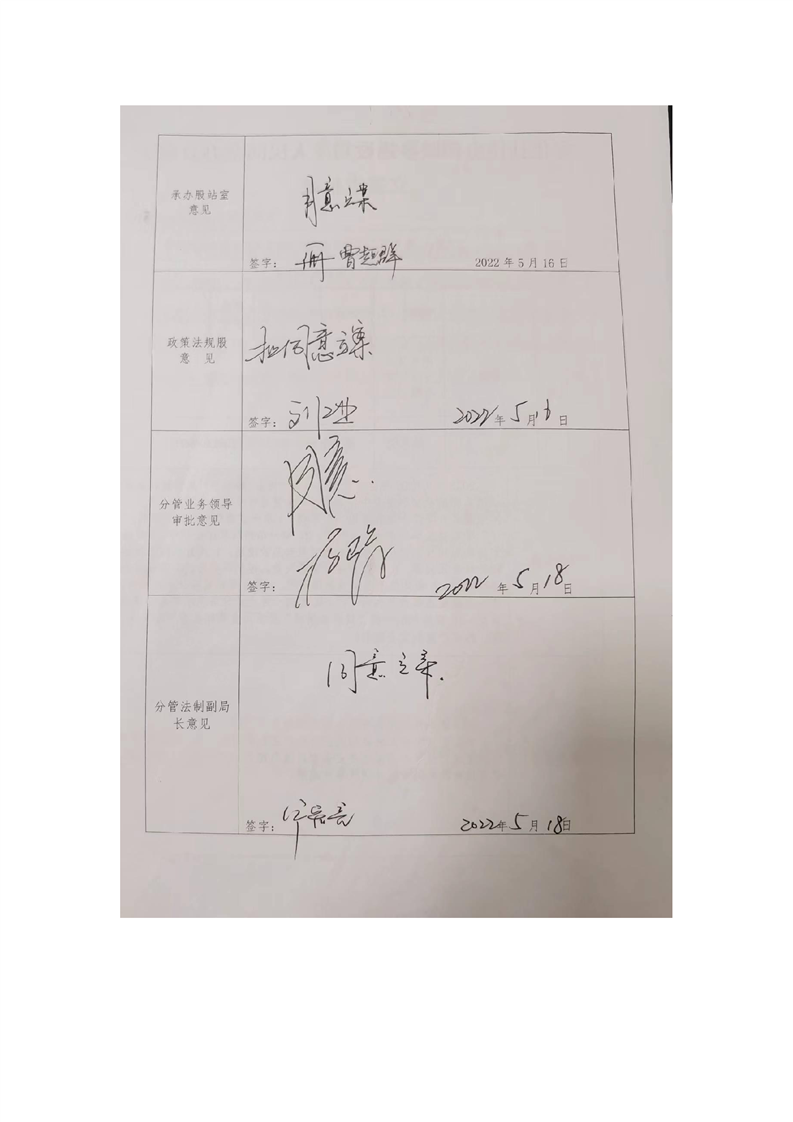 承办股站室
意见
同意立案
签字： 曾超群 2022年5月16日
政策法规股
意 见
拟同意立案
签字： 2022年5月16日
分管业务领导
审批意见
同意
签字： 2022年5月18日
分管法制副局
长意见
同意立案.
签字： 2022年5月18日